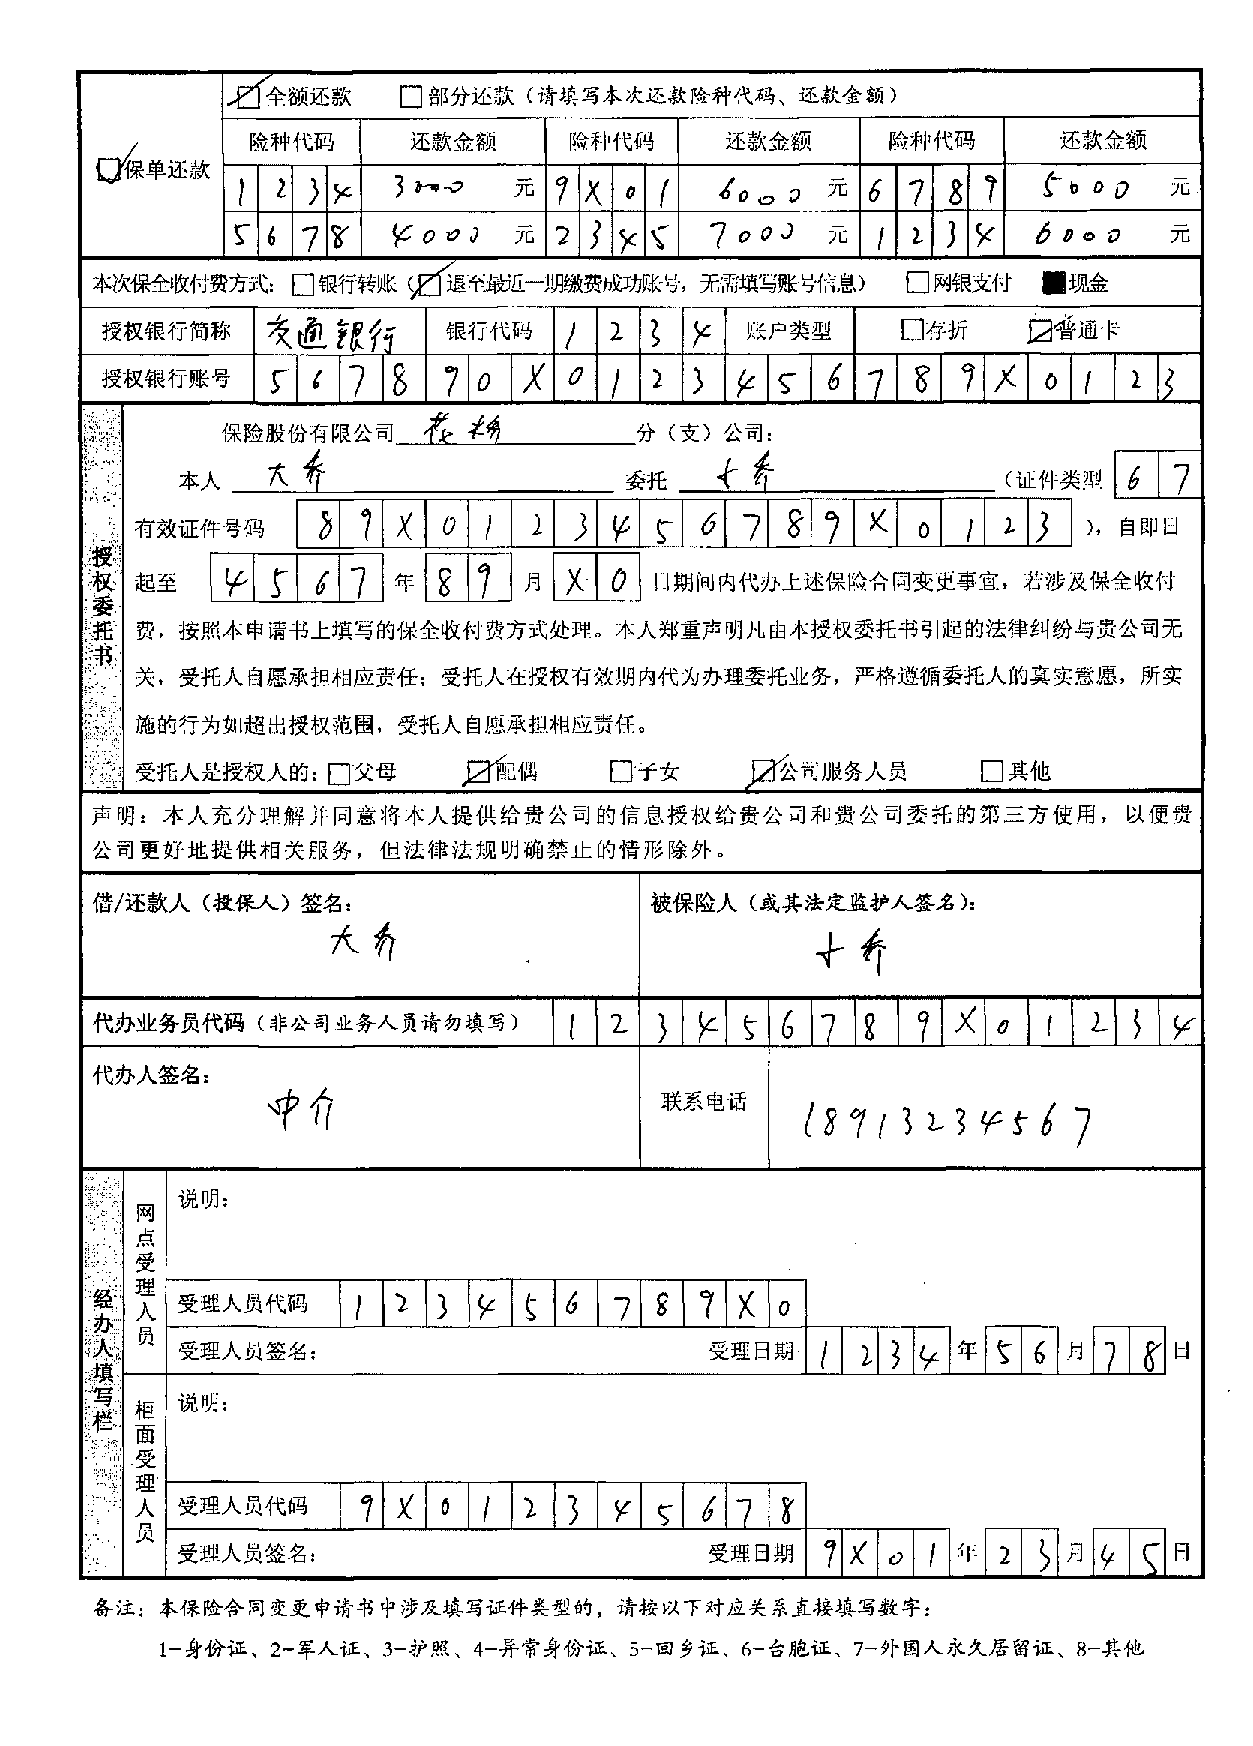 ☑全额还款 □部分还款（请填写本次还款险种代码、还款金额）
☑保单还款
险种代码 还款金额 险种代码 还款金额 险种代码 还款金额
1234 3000 元 9X01 6000 元 6789 5000 元
5678 4000 元 2345 7000 元 1234 6000 元
本次保全收付费方式：□银行转账（☑退至最近一期缴费成功账号，无需填写账号信息） □网银支付 ■现金
授权银行简称 交通银行 银行代码 1234 账户类型 □存折 ☑普通卡
授权银行账号 567890X0123456789X0123
授权委托书
保险股份有限公司 花粉 分（支）公司：
本人 大乔 委托 小乔 （证件类型 67
有效证件号码 89X0123456789X0123 ），自即日
起至 4567 年 89 月 X0 日期间内代办上述保险合同变更事宜，若涉及保全收付
费，按照本申请书上填写的保全收付费方式处理。本人郑重声明凡由本授权委托书引起的法律纠纷与贵公司无
关，受托人自愿承担相应责任；受托人在授权有效期内代为办理委托业务，严格遵循委托人的真实意愿，所实
施的行为如超出授权范围，受托人自愿承担相应责任。
受托人是授权人的：□父母 ☑配偶 □子女 ☑公司服务人员 □其他
声明：本人充分理解并同意将本人提供给贵公司的信息授权给贵公司和贵公司委托的第三方使用，以便贵
公司更好地提供相关服务，但法律法规明确禁止的情形除外。
借/还款人（投保人）签名： 被保险人（或其法定监护人签名）：
大乔 小乔
代办业务员代码（非公司业务人员请勿填写） 123456789X01234
代办人签名：
中介 联系电话 18913234567
经办人填写栏
网点受理人员
说明：
受理人员代码 123456789X0
受理人员签名： 受理日期 1234 年 56 月 78 日
柜面受理人员
说明：
受理人员代码 9X012345678
受理人员签名： 受理日期 9X01 年 23 月 45 日
备注：本保险合同变更申请书中涉及填写证件类型的，请按以下对应关系直接填写数字：
1-身份证、2-军人证、3-护照、4-异常身份证、5-回乡证、6-台胞证、7-外国人永久居留证、8-其他